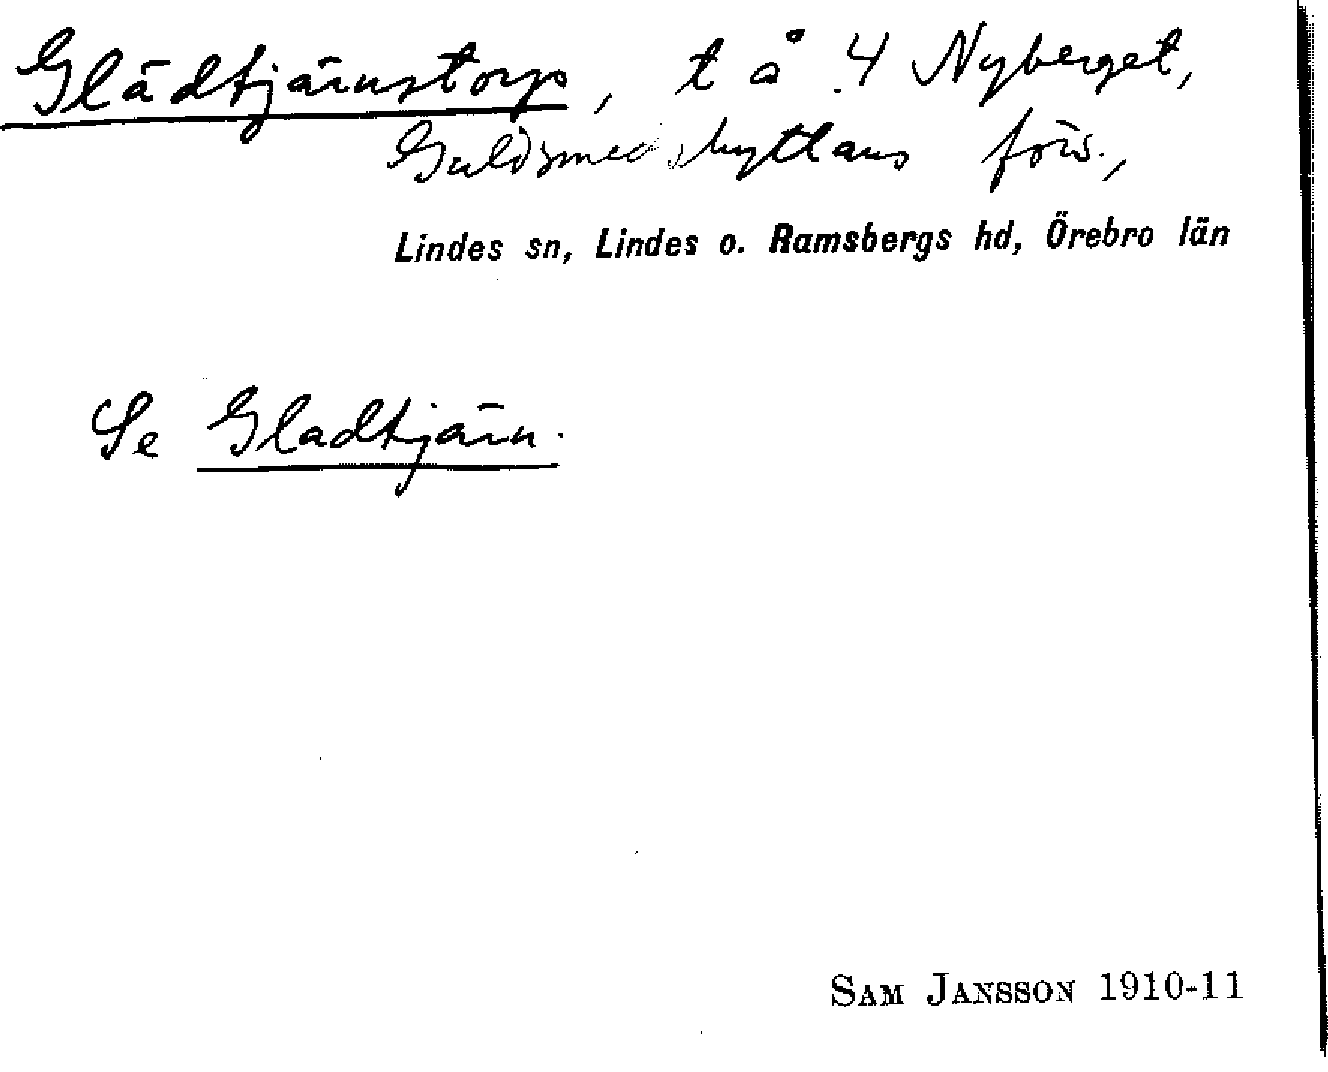 Glädtjärnstorp, t å 4 Nyberget,
Guldsmedshyttans förs.,
Lindes sn, Lindes o. Ramsbergs hd, Örebro län
Se Gladtjärn.
SAM JANSSON 1910-11